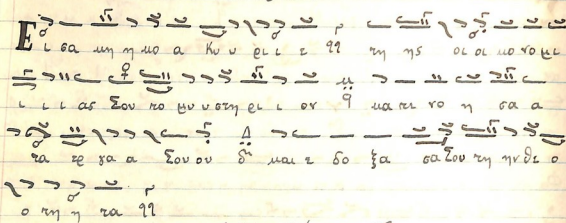 Ε ι σα κη η κο α Κυ υ ρι ε ϥϥ τη ης οι οι κο νο μι
ι ι ι ας Σου το μυ υ στη ρι ι ον κα τε νο η σα α
τα ερ γα α Σου ου και ε δο ξα σα Σου τη ην θε ο
ο τη η τα ϥϥ